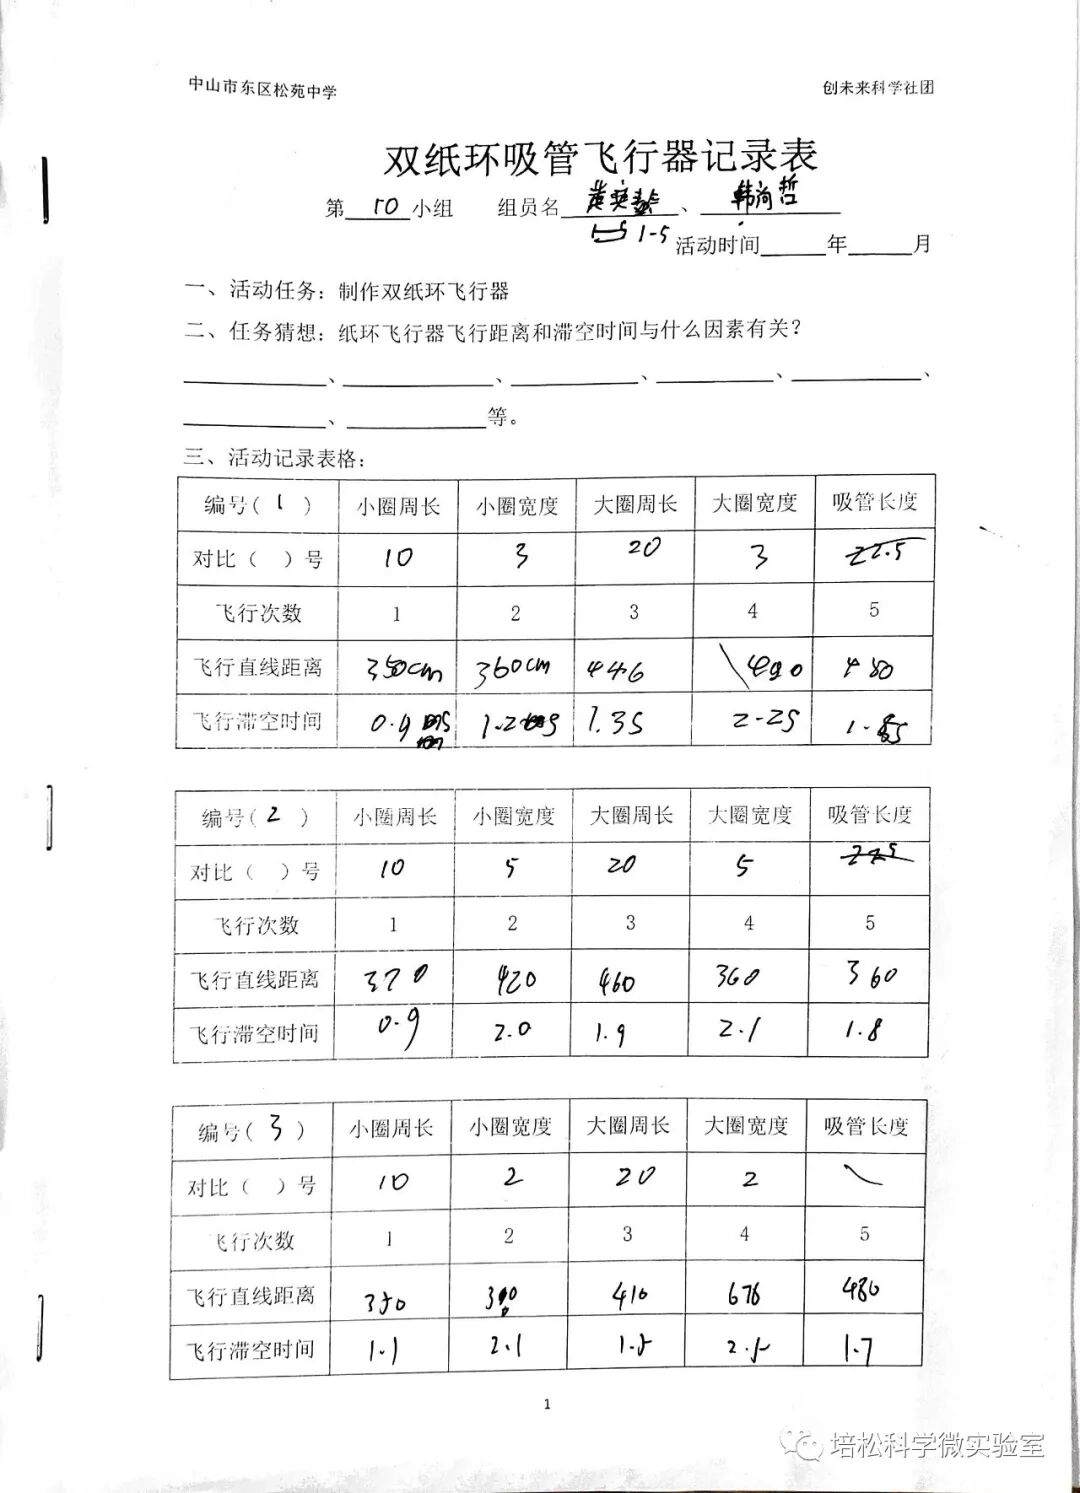 中山市东区松苑中学 创未来科学社团
双纸环吸管飞行器记录表
第 10 小组 组员名 、 韩尚哲
1-5 1-5 活动时间 年 月
一、活动任务：制作双纸环飞行器
二、任务猜想：纸环飞行器飞行距离和滞空时间与什么因素有关？
、 、 、 、 、
、 等。
三、活动记录表格：
编号（ 1 ） 小圈周长 小圈宽度 大圈周长 大圈宽度 吸管长度
对比（ ）号 10 3 20 3 22.5
飞行次数 1 2 3 4 5
飞行直线距离 350cm 360cm 446 490 480
飞行滞空时间 0.9 1.2 1.3S 2.2S 1.8S
编号（ 2 ） 小圈周长 小圈宽度 大圈周长 大圈宽度 吸管长度
对比（ ）号 10 5 20 5 22.5
飞行次数 1 2 3 4 5
飞行直线距离 370 420 460 360 360
飞行滞空时间 0.9 2.0 1.9 2.1 1.8
编号（ 3 ） 小圈周长 小圈宽度 大圈周长 大圈宽度 吸管长度
对比（ ）号 10 2 20 2
飞行次数 1 2 3 4 5
飞行直线距离 350 410 676 480
飞行滞空时间 1.1 2.1 1.5 2.5 1.7
1
培松科学微实验室